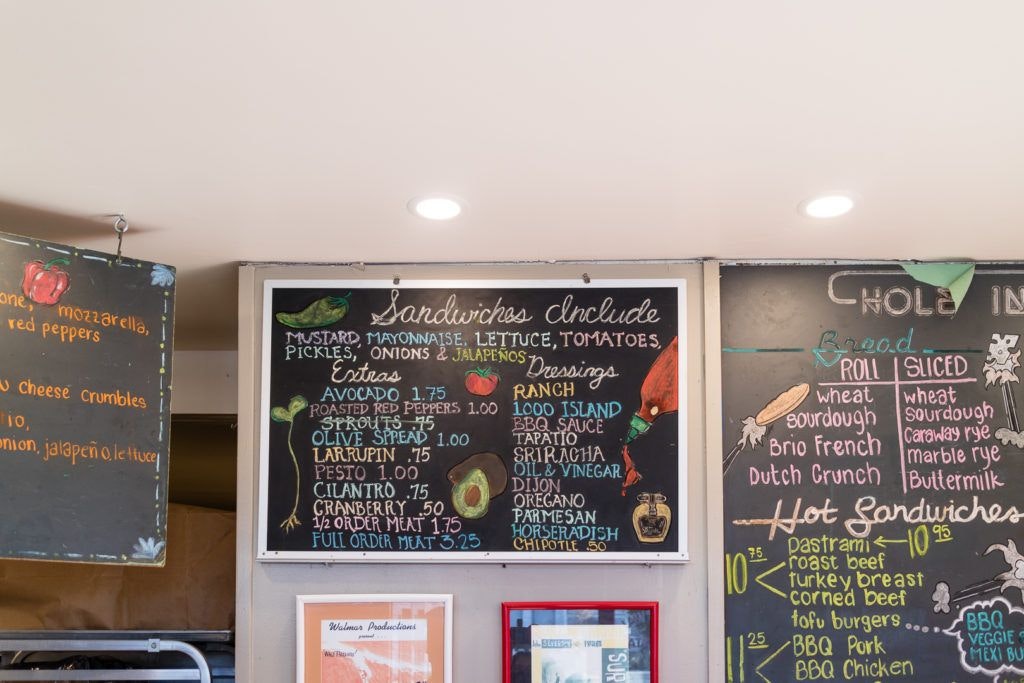 mozzarella,
red peppers
cheese crumbles
onion, jalapeño, lettuce
Sandwiches Include
MUSTARD, MAYONNAISE, LETTUCE, TOMATOES,
PICKLES, ONIONS & JALAPEÑOS
Extras
AVOCADO 1.75
ROASTED RED PEPPERS 1.00
SPROUTS .75
OLIVE SPREAD 1.00
LARRUPIN .75
PESTO 1.00
CILANTRO .75
CRANBERRY .50
1/2 ORDER MEAT 1.75
FULL ORDER MEAT 3.25
Dressings
RANCH
1000 ISLAND
BBQ SAUCE
TAPATIO
SRIRACHA
OIL & VINEGAR
DIJON
OREGANO
PARMESAN
HORSERADISH
CHIPOTLE .50
HOLE IN
Bread
ROLL
wheat
sourdough
Brio French
Dutch Crunch
SLICED
wheat
sourdough
Caraway rye
marble rye
Buttermilk
Hot Sandwiches
pastrami 10.95
10.75 roast beef
turkey breast
corned beef
tofu burgers
11.25 BBQ Pork
BBQ Chicken
BBQ
VEGGIE
MEXI
Walmar Productions
present